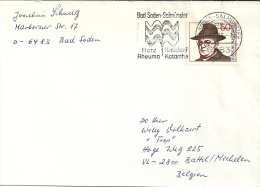 Joachim Schwag
Marborner Str. 17
D-6483 Bad Soden
Bad Soden-Salmünster
Herz Kreislauf
Rheuma Katarrhe
50
De Heer
Willy
Hoge Weg 225
2800 Battel/Mechelen
Belgien